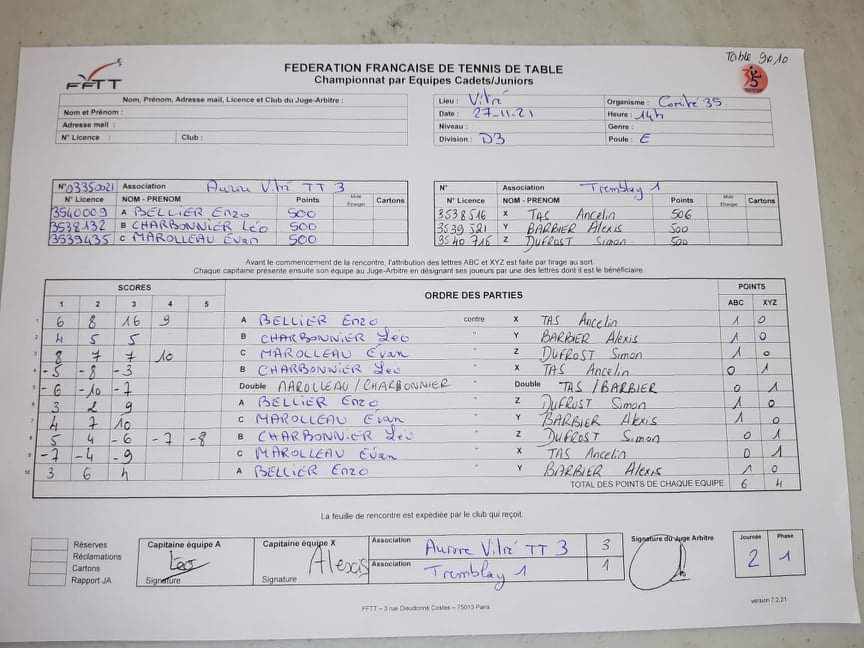 Table 9.10
FFTT
FEDERATION FRANCAISE DE TENNIS DE TABLE
Championnat par Equipes Cadets/Juniors
Nom, Prénom, Adresse mail, Licence et Club du Juge-Arbitre :
Nom et Prénom :
Adresse mail :
N° Licence : Club :
Lieu : Vitré Organisme : Comité 35
Date : 27-11-21 Heure : 14h
Niveau : Genre :
Division : D3 Poule : E
N° 03350021 Association Aurore Vitré TT 3
N° Licence NOM - PRENOM Points Muté Etranger Cartons
3540009 A BELLIER Enzo 500
3538132 B CHARBONNIER Léo 500
3539435 C MAROLLEAU Evan 500
N° Association Tremblay 1
N° Licence NOM - PRENOM Points Muté Etranger Cartons
3538516 X TAS Ancelin 506
3539521 Y BARBIER Alexis 500
3540715 Z DUFROST Simon 500
Avant le commencement de la rencontre, l'attribution des lettres ABC et XYZ est faite par tirage au sort.
Chaque capitaine présente ensuite son équipe au Juge-Arbitre en désignant ses joueurs par une des lettres dont il est le bénéficiaire.
SCORES ORDRE DES PARTIES POINTS
1 2 3 4 5 ABC XYZ
1 6 8 16 9 A BELLIER Enzo contre X TAS Ancelin 1 0
2 4 5 5 B CHARBONNIER Léo " Y BARBIER Alexis 1 0
3 8 7 7 10 C MAROLLEAU Evan " Z DUFROST Simon 1 0
4 -5 -8 -3 B CHARBONNIER Léo " X TAS Ancelin 0 1
5 -6 -10 -7 Double MAROLLEAU/CHARBONNIER " Double TAS/BARBIER 0 1
6 3 2 9 A BELLIER Enzo " Z DUFROST Simon 1 0
7 4 7 10 C MAROLLEAU Evan " Y BARBIER Alexis 1 0
8 5 4 -6 -7 -8 B CHARBONNIER Léo " Z DUFROST Simon 0 1
9 -7 -4 -9 C MAROLLEAU Evan " X TAS Ancelin 0 1
10 3 6 4 A BELLIER Enzo " Y BARBIER Alexis 1 0
TOTAL DES POINTS DE CHAQUE EQUIPE 6 4
La feuille de rencontre est expédiée par le club qui reçoit.
Réserves
Réclamations
Cartons
Rapport JA
Capitaine équipe A
Léo
Signature
Capitaine équipe X
Alexis
Signature
Association Aurore Vitré TT 3 3
Association Tremblay 1 1
Signature du Juge Arbitre
Journée Phase
2 1
FFTT – 3 rue Dieudonné Costes – 75013 Paris
version 7.2.21